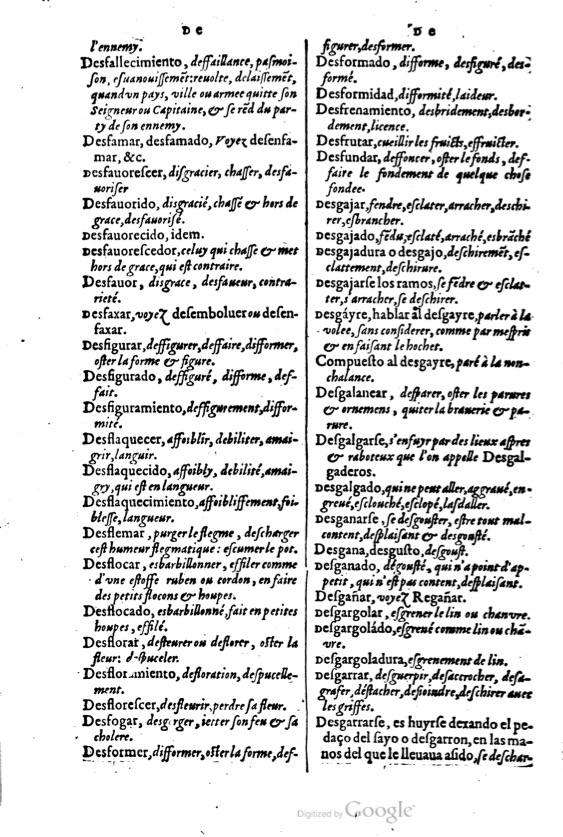 D E
l'ennemy.
Desfallecimiento, deffaillance, pasmoi-
son, esuanouissemẽt: reuolte, delaissemẽt,
quand vn pays, ville ou armee quitte son
Seigneur ou Capitaine, & se rẽd du par-
ty de son ennemy.
Desfamar, desfamado, Voyez desenfa-
mar, &c.
desfauorescer, disgracier, chasser, desfa-
uoriser
Desfauorido, disgracié, chassé & hors de
grace, desfauorisé.
desfauorecido, idem.
desfauorescedor, celuy qui chasse & met
hors de grace, qui est contraire.
Desfauor, disgrace, desfaueur, contra-
rieté.
desfaxar, voyez desemboluer ou desen-
faxar.
Desfigurar, deffigurer, deffaire, difformer,
oster la forme & figure.
Desfigurado, deffiguré, difforme, def-
fait.
Desfiguramiento, deffigurement, diffor-
mité.
Desflaquecer, affoiblir, debiliter, amai-
grir, languir.
Desflaquecido, affoibly, debilité, amai-
gry, qui est en langueur.
Desflaquecimiento, affoiblissement, foi-
blesse, langueur.
Desflemar, purger le flegme, descharger
cest humeur flegmatique: escumer le pot.
Desflocar, esbarbillonner, effiler comme
d'vne estoffe ruben ou cordon, en faire
des petits flocons & houpes.
Desflocado, esbarbillonné, fait en petites
houpes, effilé.
Desflorar, desfleurer ou deflorer, oster la
fleur: despuceler.
Desfloramiento, defloration, despucelle-
ment.
Desflorescer, desfleurir, perdre sa fleur.
Desfogar, desgorger, ietter son feu & sa
cholere.
Desformer, difformer, oster la forme, def-
D E
figurer, desformer.
Desformado, difforme, desfiguré, des-
formé.
Desformidad, difformité, laideur.
Desfrenamiento, desbridement, desbor-
dement, licence.
Desfrutar, cueillir les fruicts, effruicter.
Desfundar, deffoncer, oster le fonds, def-
faire le fondement de quelque chose
fondee.
Desgajar, fendre, esclater, arracher, deschi-
rer, esbrancher.
Desgajado, fẽdu, esclaté, arraché, esbrãché
Desgajadura o desgajo, deschiremẽt, es-
clattement, deschirure.
Desgajarse los ramos, se fẽdre & esclat-
ter, s'arracher, se deschirer.
Desgáyre, hablar al desgayre, parler à la
volee, sans considerer, comme par mespris
& en faisant le hochet.
Compuesto al desgayre, paré à la non-
chalance.
Desgalanear, desparer, oster les parures
& ornemens, quiter la brauerie & pa-
rure.
Desgalgarse, s'enfuyr par des lieux aspres
& raboteux que l'on appelle Desgal-
gaderos.
Desgalgado, qui ne peut aller, aggraué, en-
greué, esclouché, esclopé, las d'aller.
Desganarse, se desgouster, estre tout mal-
content, desplaisant & desgousté.
Desgana, desgusto, desgoust.
Desganado, degousté, qui n'a point d'ap-
petit, qui n'est pas content, desplaisant.
Desgañar, voyez Regañar.
Desgargolar, esgrener le lin ou chanvre.
Desgargoládo, esgrené comme lin ou chã-
vre.
Desgargoladura, esgrenement de lin.
Desgarrar, desguerpir, desaccrocher, desa-
grafer, destacher, desioindre, deschirer auec
les griffes.
Desgarrarse, es huyrse dexando el pe-
daço del sayo o desgarron, en las ma-
nos del que le lleuaua asido, se deschar-
Digitized by Google